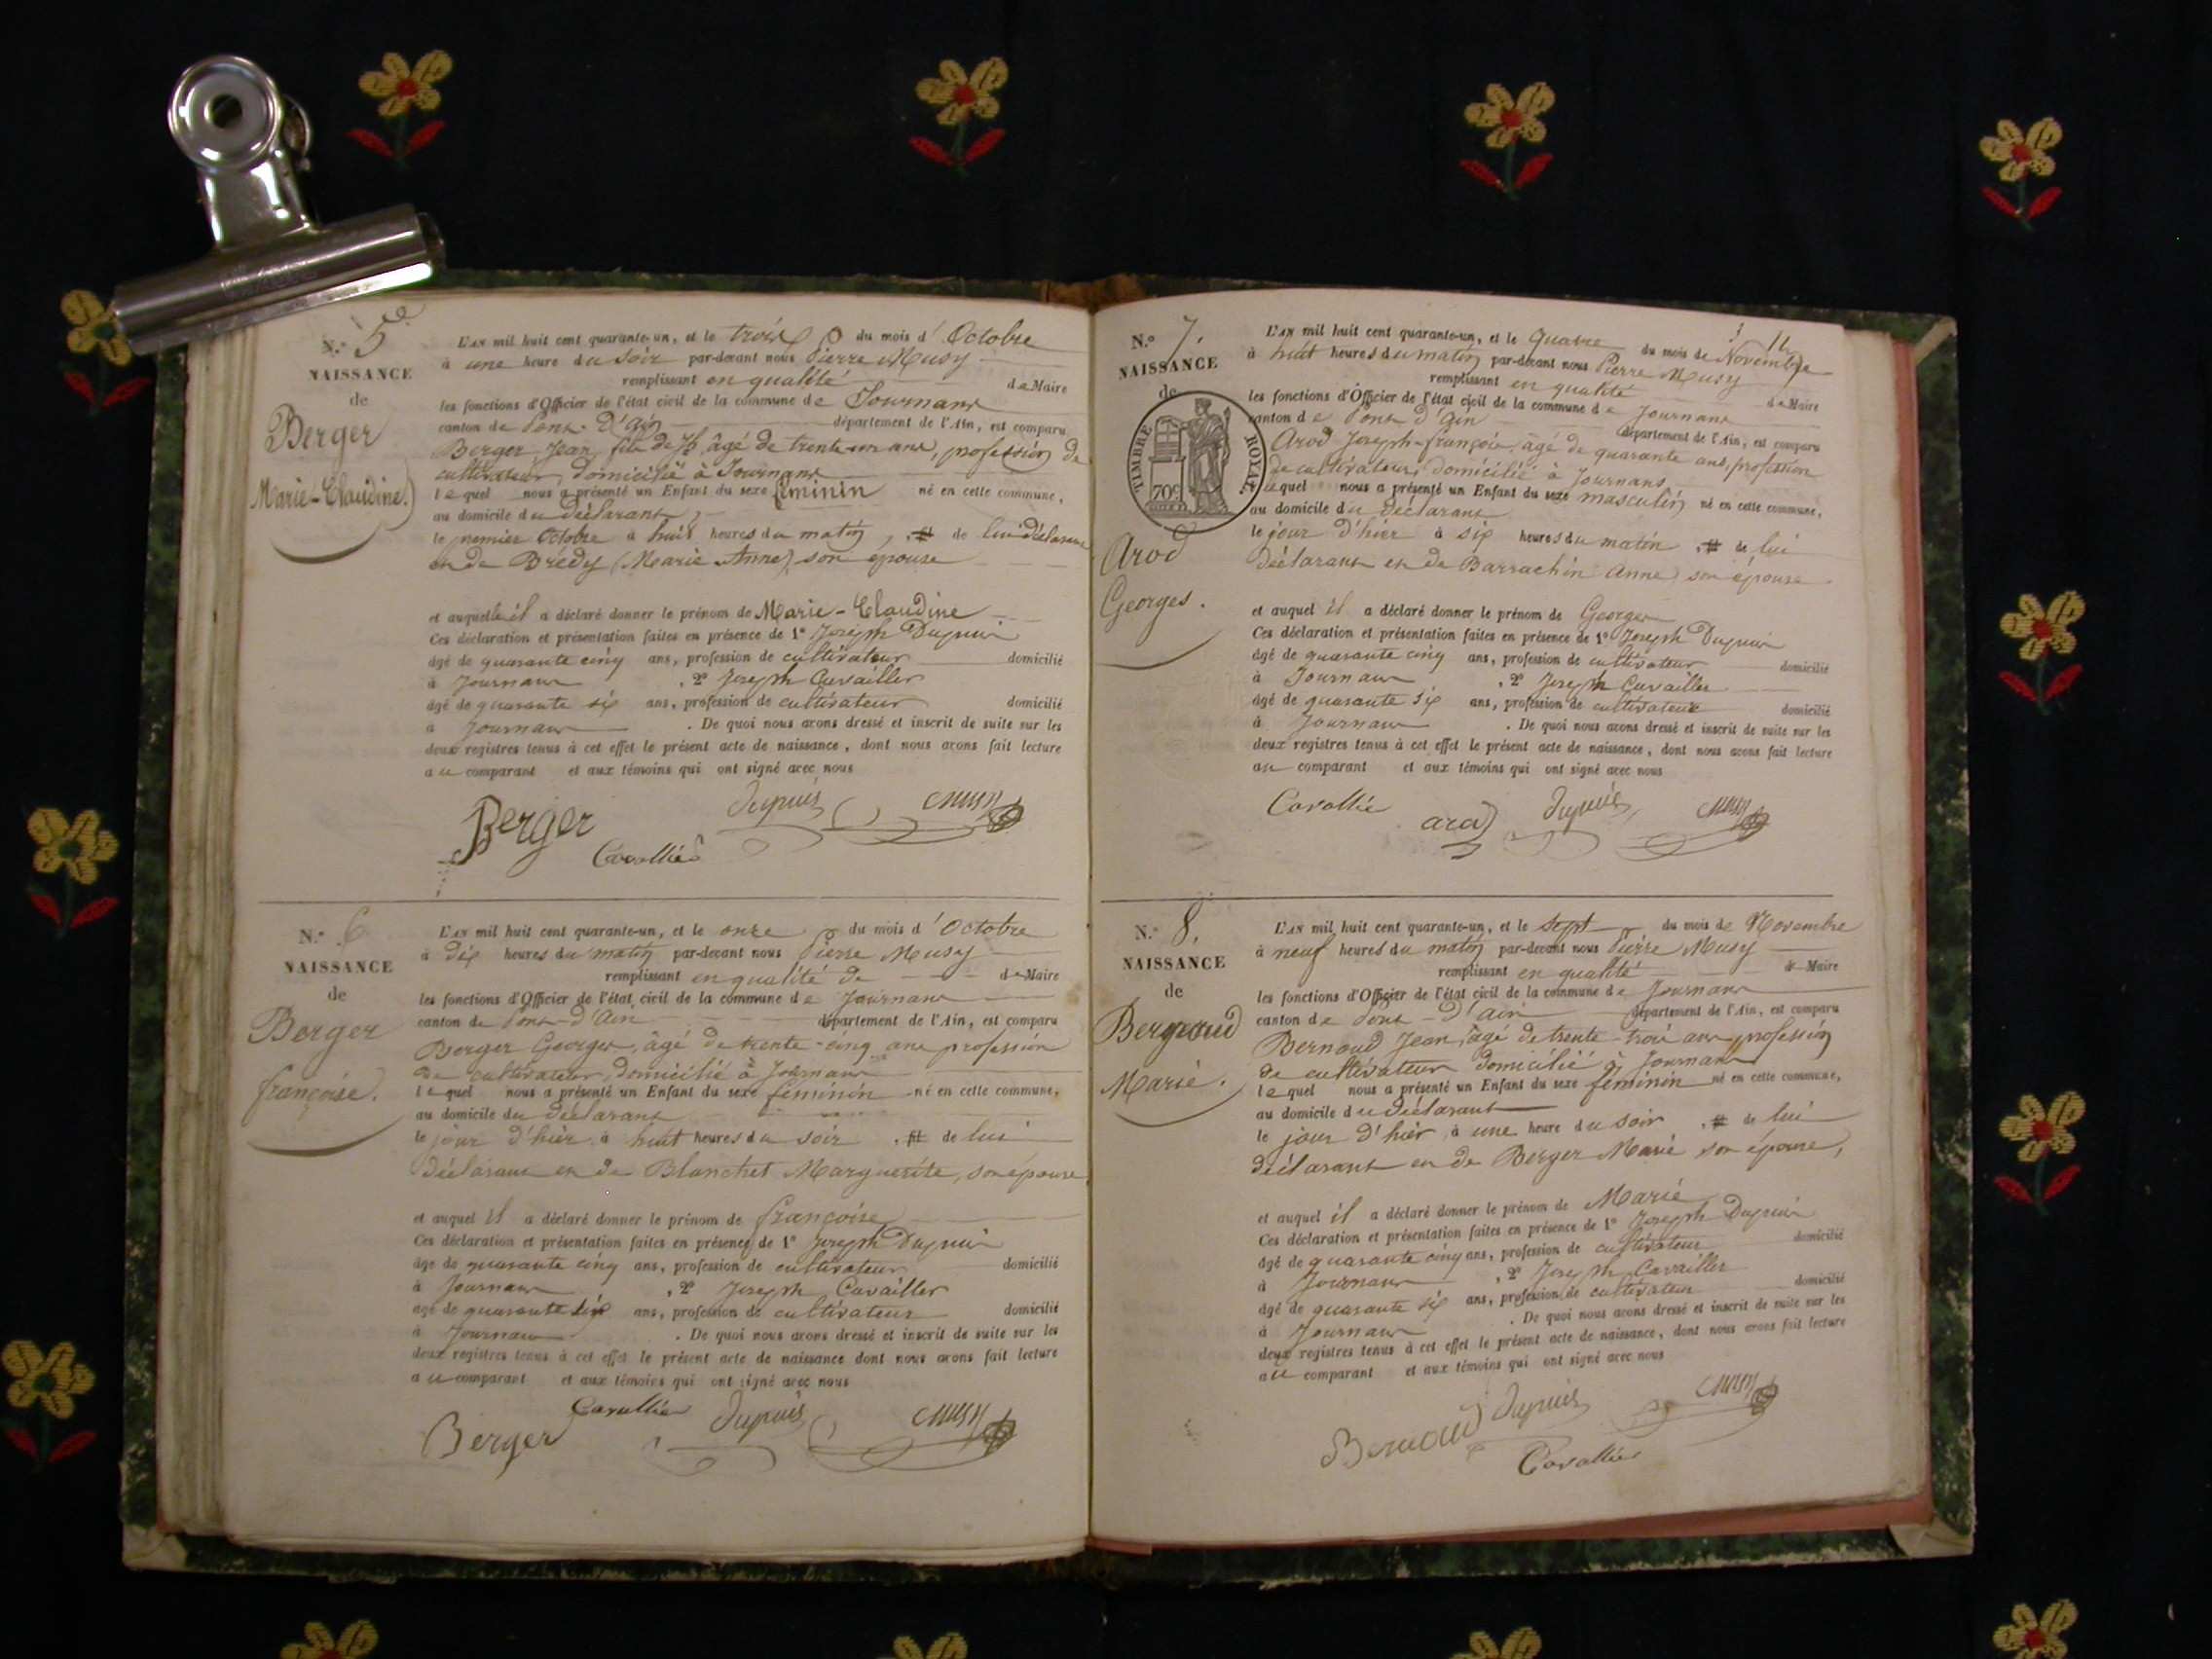 N.º 5
NAISSANCE
de
Berger
Marie-Claudine.
L'AN mil huit cent quarante-un, et le trois du mois d'Octobre
à une heure du soir par-devant nous Pierre Musy
remplissant en qualité de Maire
les fonctions d'Officier de l'état civil de la commune de Journans
canton de Pont-d'Ain département de l'Ain, est comparu
Berger Jean, fils de âgé de trente-un ans, profession de
cultivateur, domicilié à Journans
lequel nous a présenté un Enfant du sexe féminin né en cette commune,
au domicile du déclarant,
le premier Octobre à huit heures du matin, fils de lui déclarant
et de Brédy (Marie Anne) son épouse
et auquel il a déclaré donner le prénom de Marie-Claudine
Ces déclaration et présentation faites en présence de 1º Joseph Dupuis
âgé de quarante cinq ans, profession de cultivateur domicilié
à Journans, 2º Joseph Cavailler
âgé de quarante six ans, profession de cultivateur domicilié
à Journans. De quoi nous avons dressé et inscrit de suite sur les
deux registres tenus à cet effet le présent acte de naissance, dont nous avons fait lecture
au comparant et aux témoins qui ont signé avec nous
Berger Dupuis Musy
Cavallier
N.º 6
NAISSANCE
de
Berger
françoise.
L'AN mil huit cent quarante-un, et le onze du mois d'Octobre
à dix heures du matin par-devant nous Pierre Musy
remplissant en qualité de de Maire
les fonctions d'Officier de l'état civil de la commune de Journans
canton de Pont-d'Ain département de l'Ain, est comparu
Berger Georges, âgé de trente-cinq ans profession
de cultivateur, domicilié à Journans
lequel nous a présenté un Enfant du sexe féminin né en cette commune,
au domicile du déclarant
le jour d'hier à huit heures du soir, fils de lui
déclarant et de Blanchet Marguerite, son épouse
et auquel il a déclaré donner le prénom de françoise
Ces déclaration et présentation faites en présence de 1º Joseph Dupuis
âgé de quarante cinq ans, profession de cultivateur domicilié
à Journans, 2º Joseph Cavailler
âgé de quarante six ans, profession de cultivateur domicilié
à Journans. De quoi nous avons dressé et inscrit de suite sur les
deux registres tenus à cet effet le présent acte de naissance dont nous avons fait lecture
au comparant et aux témoins qui ont signé avec nous
Cavallier Dupuis Musy
Berger
N.º 7.
NAISSANCE
de
TIMBRE ROYAL.
70c
Arod
Georges.
L'AN mil huit cent quarante-un, et le quatre du mois de Novembre
à huit heures du matin par-devant nous Pierre Musy
remplissant en qualité de Maire
les fonctions d'Officier de l'état civil de la commune de Journans
canton de Pont d'Ain département de l'Ain, est comparu
Arod Joseph-françois, âgé de quarante ans, profession
de cultivateur, domicilié à Journans
lequel nous a présenté un Enfant du sexe masculin né en cette commune,
au domicile du déclarant
le jour d'hier à six heures du matin, fils de lui
déclarant et de Barrachin Anne, son épouse
et auquel il a déclaré donner le prénom de Georges
Ces déclaration et présentation faites en présence de 1º Joseph Dupuis
âgé de quarante cinq ans, profession de cultivateur domicilié
à Journans, 2º Joseph Cavailler
âgé de quarante six ans, profession de cultivateur domicilié
à Journans. De quoi nous avons dressé et inscrit de suite sur les
deux registres tenus à cet effet le présent acte de naissance, dont nous avons fait lecture
au comparant et aux témoins qui ont signé avec nous
Cavallier arod Dupuis Musy
N.º 8.
NAISSANCE
de
Bernoud
Marie.
L'AN mil huit cent quarante-un, et le sept du mois de Novembre
à neuf heures du matin par-devant nous Pierre Musy
remplissant en qualité de Maire
les fonctions d'Officier de l'état civil de la commune de Journans
canton de Pont-d'Ain département de l'Ain, est comparu
Bernoud Jean, âgé de trente-trois ans, profession
de cultivateur domicilié à Journans
lequel nous a présenté un Enfant du sexe féminin né en cette commune,
au domicile du déclarant
le jour d'hier, à une heure du soir, fils de lui
déclarant et de Berger Marie son épouse,
et auquel il a déclaré donner le prénom de Marie
Ces déclaration et présentation faites en présence de 1º Joseph Dupuis
âgé de quarante cinq ans, profession de cultivateur domicilié
à Journans, 2º Joseph Cavailler
âgé de quarante six ans, profession de cultivateur domicilié
à Journans. De quoi nous avons dressé et inscrit de suite sur les
deux registres tenus à cet effet le présent acte de naissance, dont nous avons fait lecture
au comparant et aux témoins qui ont signé avec nous
Bernoud Dupuis Musy
Cavallier